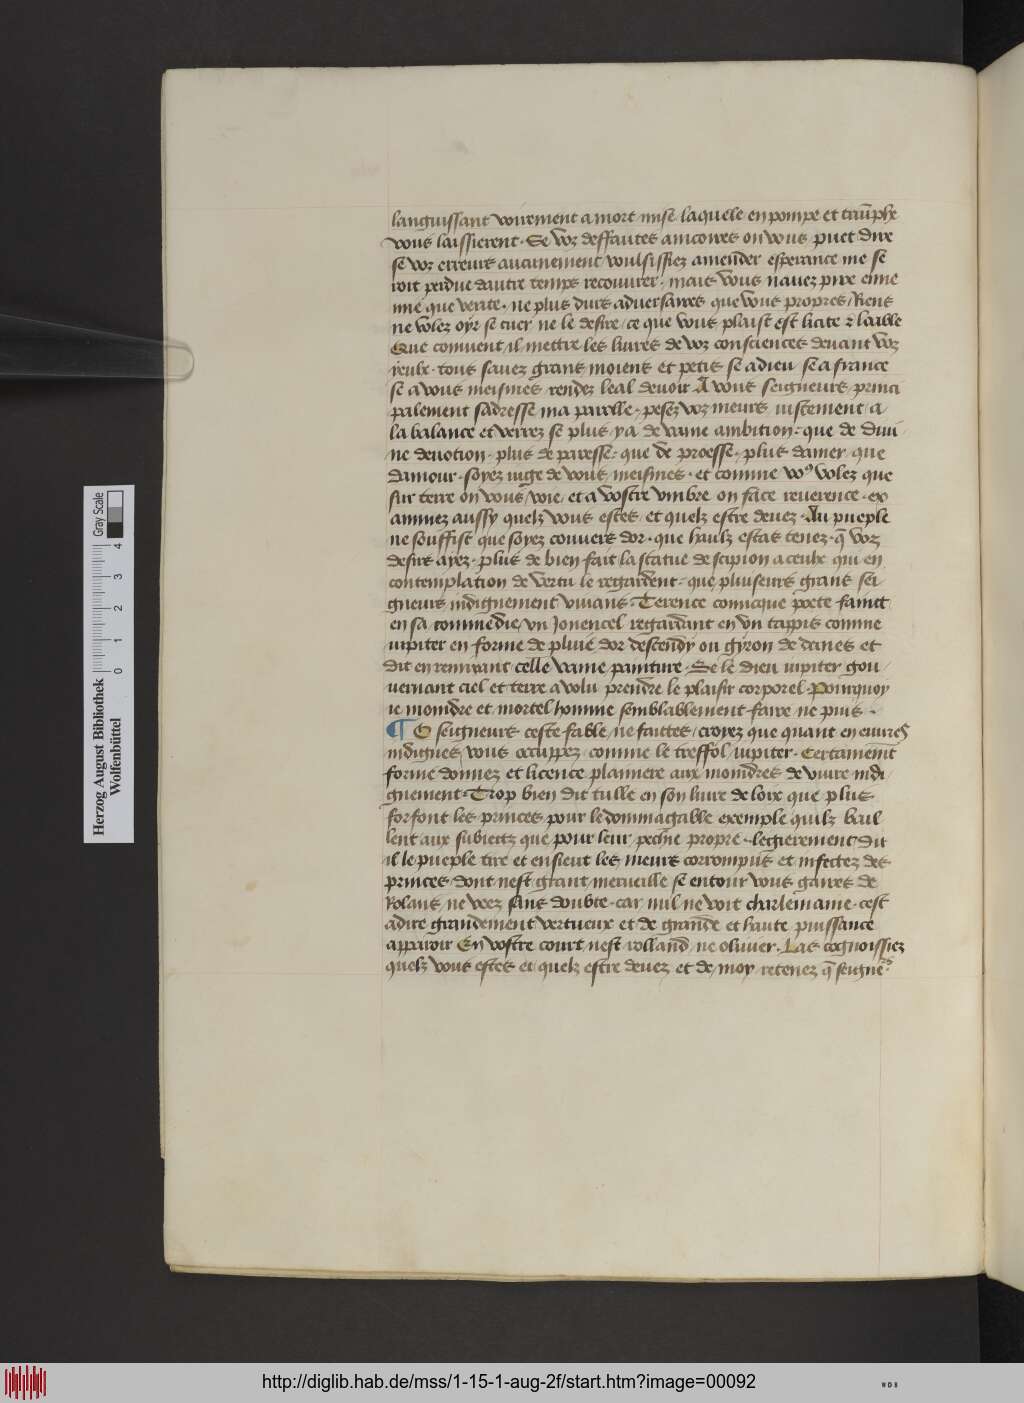 languissant voirement a mort mise laquele en pompe et triu̅phe
vous laissierent · Se voz deffautes amcores on vous puet dire
se voz erreurs aucunement voulsissiez amender esperance me se
roit perdue dautre temps recouurer · mais vous nauez pire enne
mie que verite · ne plus durs aduersaires que vous propres / Riens
ne volez oyr se tuer ne le desire / ce que vous plaist est licite & loable
Que convient il mettre les liures de voz consciences deuant voz
yeulx · tous sauez grans moiens et petis se a dieu se a france
se a vous meismes rendez leal deuoir A vous seigneurs princi
palement sadresse ma parolle · pesez voz meurs iustement a
la balance et verrez se plus y a de vaine ambition · que de diui
ne deuotion · plus de paresse · que de proesse · plus damer que
damour · soyez iuge de vous meismes · et comme vo⁹ volez que
sur terre on vous voie / et a vostre vmbre on face reuerence · ex
aminez aussy quelz vous estes / et quelz estre deuez · Au pueple
ne souffist que soyez couuers dor · que haulz estas tenez · q̅ voz
desirs ayez · plus de bien fait la statue de scipion a ceulx qui en
contemplation de vertu le regardent · que pluiseurs grans sei
gneurs indignement viuans · Terence comicque poete faint
en sa commedie / vn Jouencel regardant en vn tappis comme
iupiter en forme de pluie dor descendy ou gyron de danes et
dit en remirant celle vaine painture · Se le dieu iupiter gou
uernant ciel et terre a volu prendre le plaisir corporel · Pourquoy
ie moindre et mortel homme semblablement faire ne puis ·
¶ O seigneurs ceste fable ne faittes / croyez que quant en euures
indignes vous occuppez comme le treffol iupiter · Certainem̅t
forme donnez et licence planiere aux moindres de viure indi
gnement · Trop bien dit tulle en son liure de loix que plus
forfont les princes pour le dommagable exemple quilz bail
lent aux subiectz que pour leur pechie propre · legierement dit
il le pueple tire et ensieut les meurs corrompus et infectez des
princes · dont nest grant merueille se entour vous gaires de
Rolans ne veez sans doubte · car nul ne voit charlemaine · cest
adire grandement vertueux et de grande et haute puissance
apparoir En vostre court nest rolland ne oliuier · Las cognoissiez
quelz vous estes et quelz estre deuez et de moy retenez q̅ seigne͛s
Herzog August Bibliothek
Wolfenbüttel
0 1 2 3 4
Gray Scale
http://diglib.hab.de/mss/1-15-1-aug-2f/start.htm?image=00092
WDB